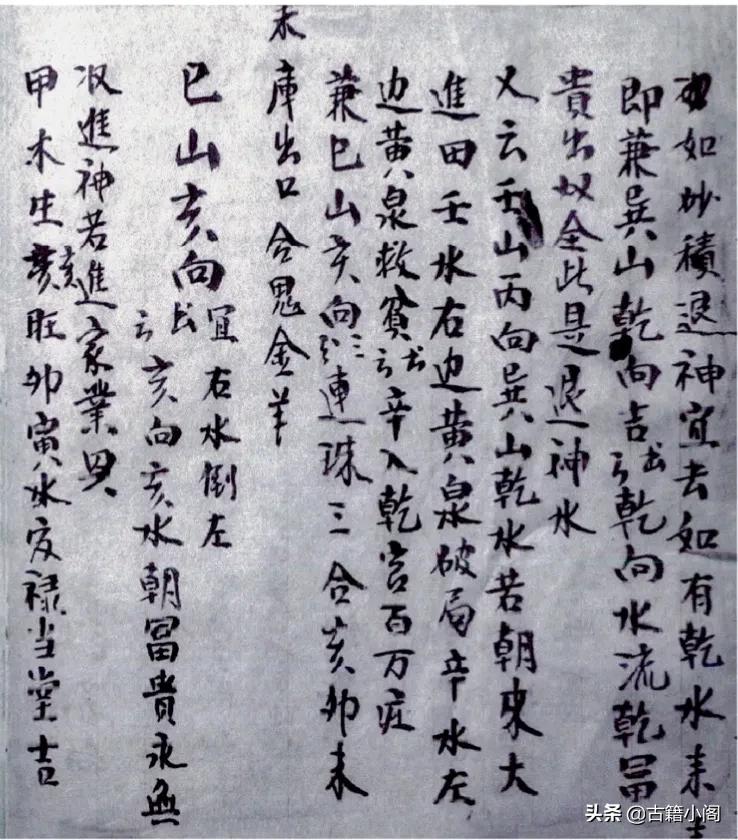 如妙積退神宜去如有乾水来
即兼巽山乾向吉书云乾向水流乾冨
貴出奴全此是退神水
又云壬山丙向巽山乾水若朝來大
進田壬水右边黄泉破局辛水左
边黄泉救貧书云辛入乾宫百万庄
兼巳山亥向連珠三合亥卯未
未
庫出口合鬼金羊
巳山亥向
宜右水倒左
书云亥向亥水朝冨貴永無
収進神若進家業
甲木生亥旺卯寅水禄当堂吉
头条 @古籍小阁